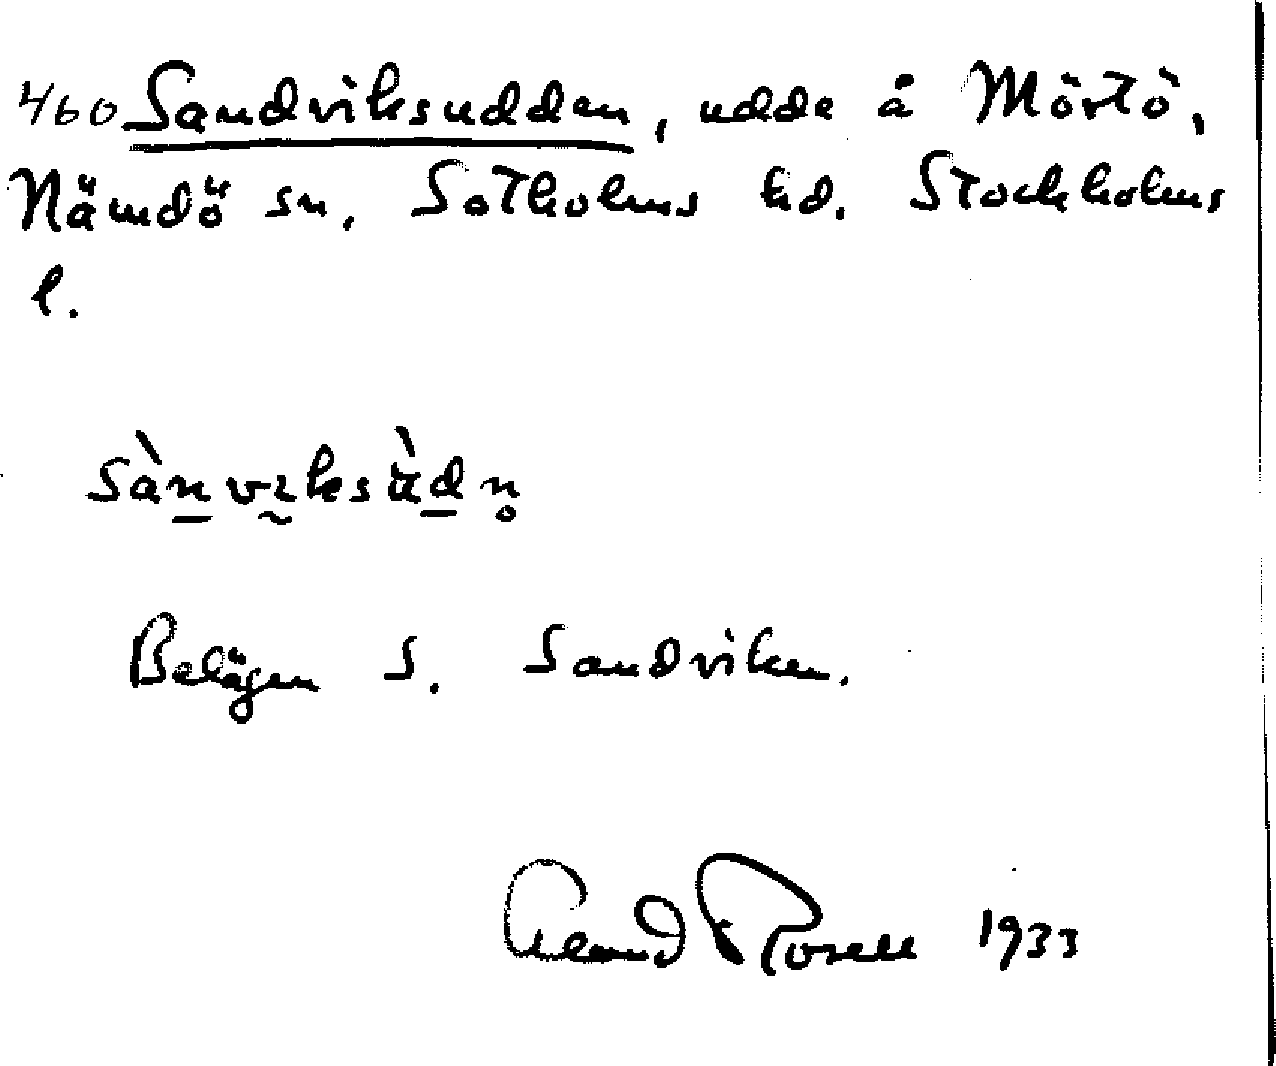 460 Sandviksudden, udde å Mörtö,
Nämdö sn, Sotholms hd. Stockholms
l.
sàn̲vı̰ksùd̲n̥
Belägen S. Sandviken.
Rosell 1933